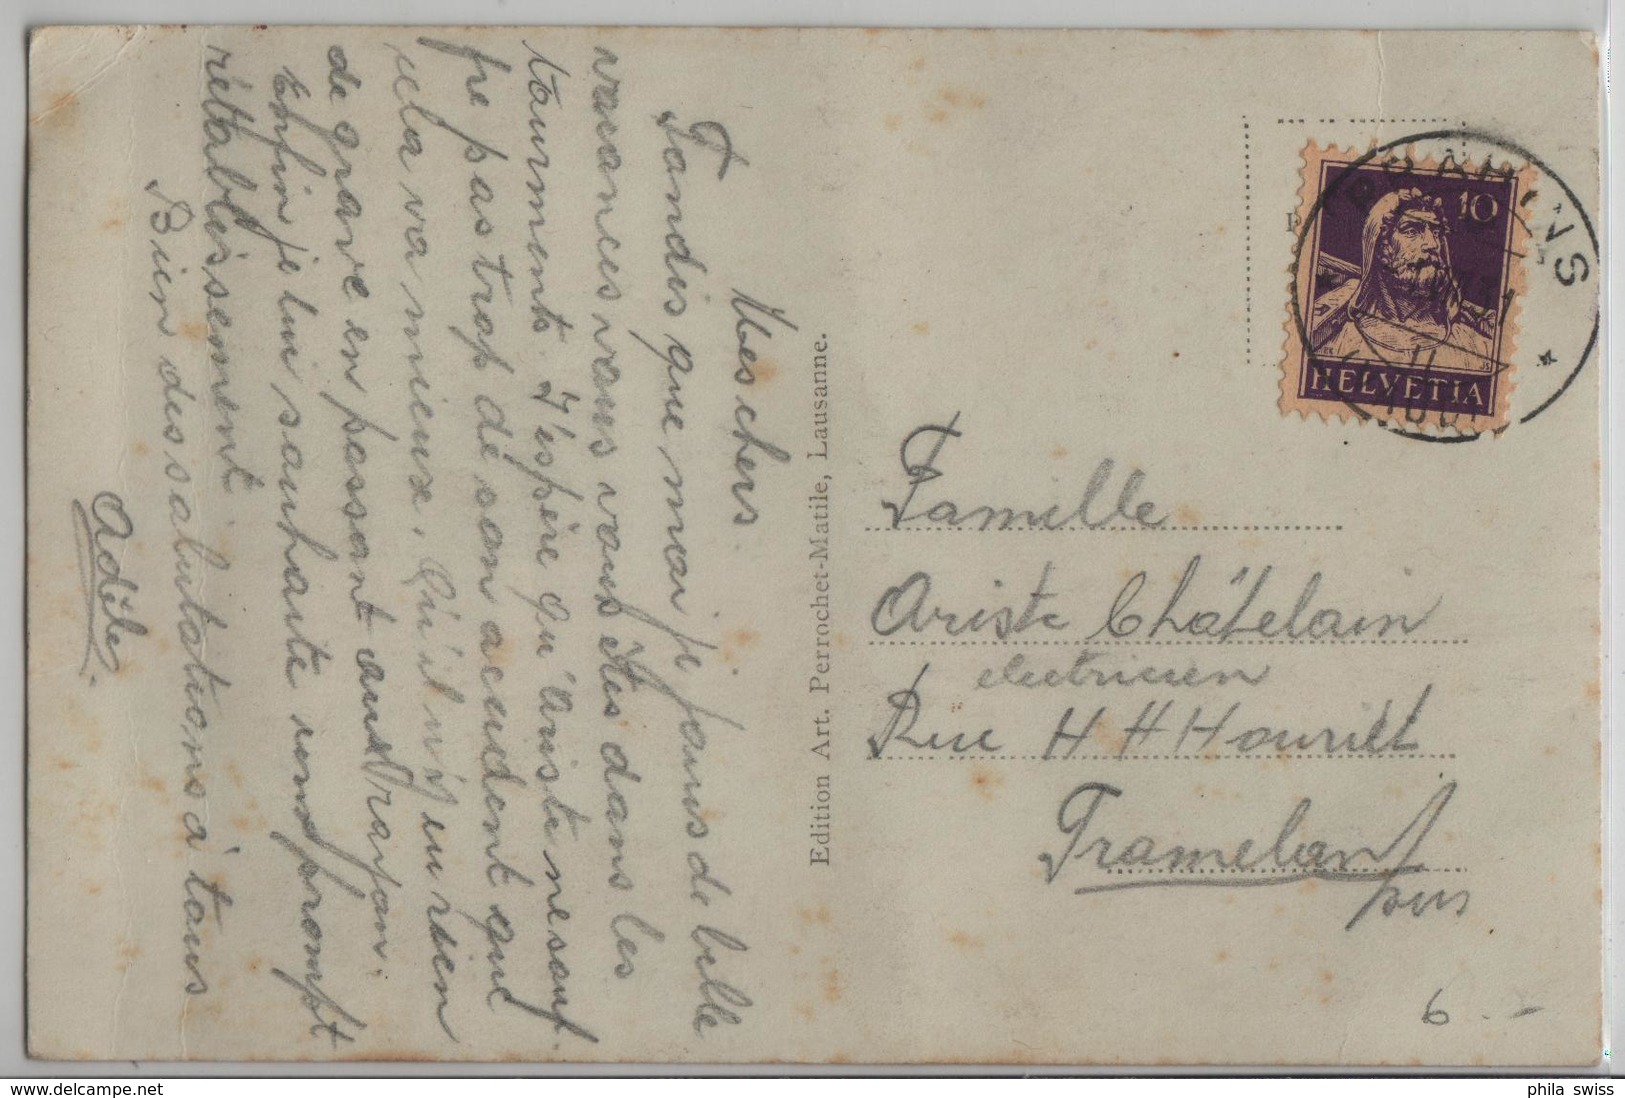 Mes chers
Tandis que moi je jouis de belle
vacances vous vous êtes dans les
tourments. J'espère qu'Ariste ne souf-
fre pas trop de son accident que
cela va mieux. Qu'il n'y eu rien
de grave en passant aux
Enfin je lui souhaite un prompt
rétablissement
Bien des salutations à tous
Adèle.
Edition Art. Perrochet-Matile, Lausanne.
10
HELVETIA
Famille
Ariste Châtelain
électricien
Rue H H Houriet
Tramelan
6.-
phila swiss